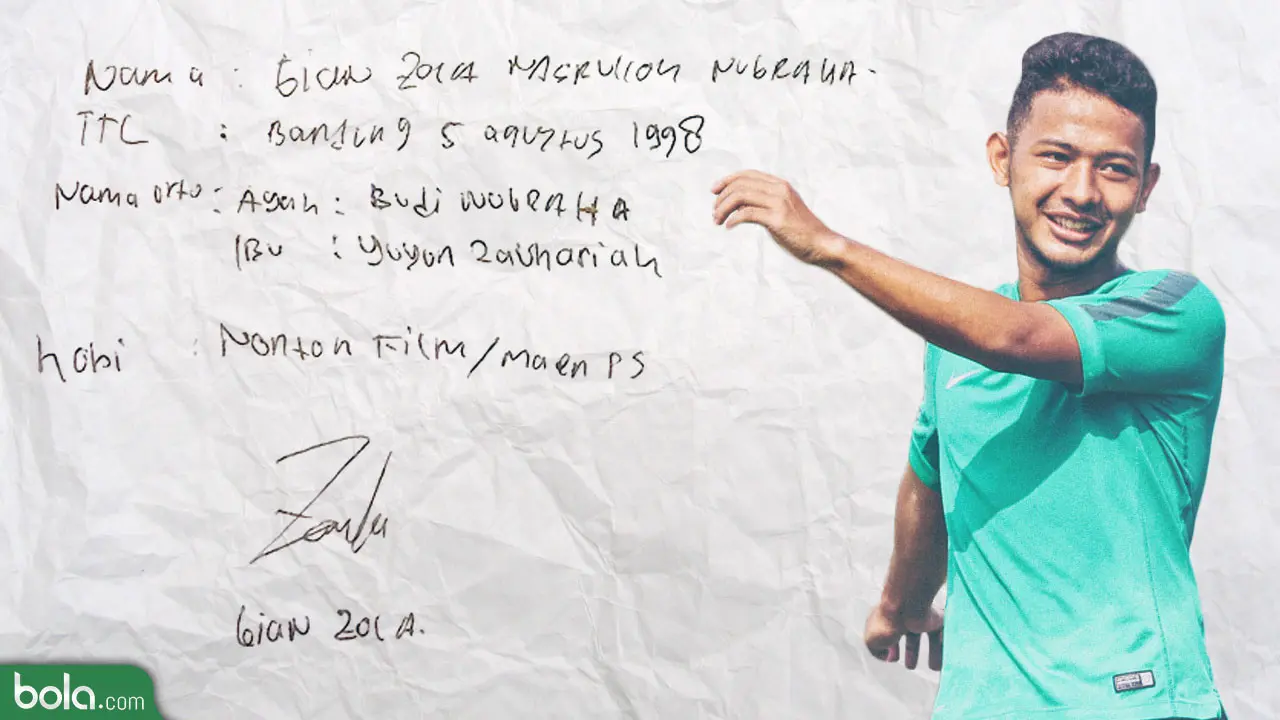 Nama : Gian Zola Nasrulloh Nugraha.
TTL : Bandung 5 agustus 1998
Nama ortu : Ayah : Budi Nugraha
Ibu : Yuyun Zauhariah
hobi : Nonton Film/Maen PS
Gian Zola.
bola.com